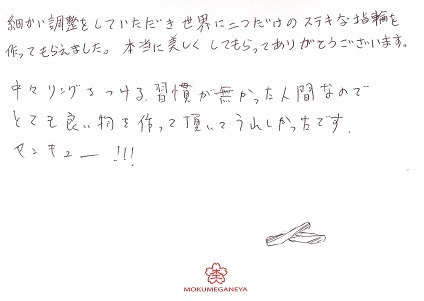 細かい調整をしていただき世界に二つだけのステキな指輪を
作ってもらえました。本当に美しくしてもらってありがとうございます。
中々リングをつける習慣が無かった人間なので
とても良い物を作って頂いてうれしかったです。
サンキュー!!!
MOKUMEGANEYA